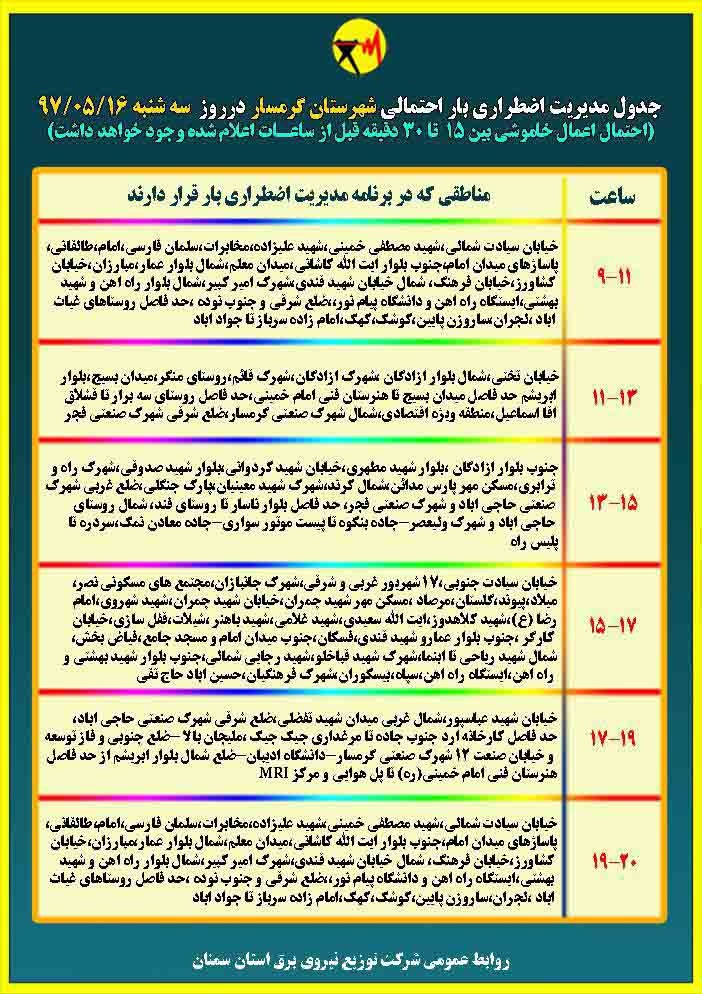 جدول مدیریت اضطراری بار احتمالی شهرستان گرمسار درروز سه شنبه ۹۷/۰۵/۱۶
(احتمال اعمال خاموشی بین ۱۵ تا ۳۰ دقیقه قبل از ساعات اعلام شده وجود خواهد داشت)
ساعت
مناطقی که در برنامه مدیریت اضطراری بار قرار دارند
۹-۱۱
خیابان سیادت شمالی،شهید مصطفی خمینی،شهید علیزاده،مخابرات،سلمان فارسی،امام،طالقانی،
پاساژهای میدان امام،جنوب بلوار ایت الله کاشانی،میدان معلم،شمال بلوار عمار،مبارزان،خیابان
کشاورز،خیابان فرهنگ، شمال خیابان شهید قندی،شهرک امیر کبیر،شمال بلوار راه اهن و شهید
بهشتی،ایستگاه راه اهن و دانشگاه پیام نور،،ضلع شرقی و جنوب نوده ،حد فاصل روستاهای غیاث
اباد ،نجران،ساروزن پایین،کوشک،کهک،امام زاده سرباز تا جواد اباد
۱۱-۱۳
خیابان تختی،شمال بلوار ازادگان ،شهرک ازادگان،شهرک قائم،روستای منگر،میدان بسیج،بلوار
ابریشم حد فاصل میدان بسیج تا هنرستان فنی امام خمینی،حد فاصل روستای سه برار تا قشلاق
اقا اسماعیل،منطقه ویژه اقتصادی،شمال شهرک صنعتی گرمسار،ضلع شرقی شهرک صنعتی فجر
۱۳-۱۵
جنوب بلوار ازادگان ،بلوار شهید مطهری،خیابان شهید گردوانی،بلوار شهید صدوقی،شهرک راه و
ترابری،مسکن مهر پارس مدائن،شمال کرند،شهرک شهید معینیان،پارک جنگلی،ضلع غربی شهرک
صنعتی حاجی اباد و شهرک صنعتی فجر، حد فاصل بلوار ناسار تا روستای فند، شمال روستای
حاجی اباد و شهرک ولیعصر-جاده بنکوه تا پیست موتور سواری-جاده معادن نمک،سردره تا
پلیس راه
۱۵-۱۷
خیابان سیادت جنوبی،۱۷ شهریور غربی و شرقی،شهرک جانبازان،مجتمع های مسکونی نصر،
میلاد،پیوند،گلستان،مرصاد ،مسکن مهر شهید چمران،خیابان شهید چمران،شهید شهروی،امام
رضا (ع)،شهید کلاهدوز،ایت الله سعیدی،شهید غلامی،شهید باهنر ،شیلات،قفل سازی،خیابان
کارگر ،جنوب بلوار عمارو شهید قندی،فسکان،جنوب میدان امام و مسجد جامع،فیاض بخش،
شمال شهید ریاحی تا ابنما،شهرک شهید فیاخلو،شهید رجایی شمالی،جنوب بلوار شهید بهشتی و
راه اهن،ایستگاه راه اهن،سپاه،بیسکوران،شهرک فرهنگیان،حسین اباد حاج تقی
۱۷-۱۹
خیابان شهید عباسپور،شمال غربی میدان شهید تفضلی،ضلع شرقی شهرک صنعتی حاجی اباد،
حد فاصل کارخانه ارد جنوب جاده تا مرغداری جیک جیک ،ملیجان بالا -ضلع جنوبی و فاز توسعه
و خیابان صنعت ۱۲ شهرک صنعتی گرمسار-دانشگاه ادیبان-ضلع شمال بلوار ابریشم از حد فاصل
هنرستان فنی امام خمینی(ره) تا پل هوایی و مرکز MRI
۱۹-۲۰
خیابان سیادت شمالی،شهید مصطفی خمینی،شهید علیزاده،مخابرات،سلمان فارسی،امام،طالقانی،
پاساژهای میدان امام،جنوب بلوار ایت الله کاشانی،میدان معلم،شمال بلوار عمار،مبارزان،خیابان
کشاورز،خیابان فرهنگ، شمال خیابان شهید قندی،شهرک امیر کبیر،شمال بلوار راه اهن و شهید
بهشتی،ایستگاه راه اهن و دانشگاه پیام نور،،ضلع شرقی و جنوب نوده ،حد فاصل روستاهای غیاث
اباد ،نجران،ساروزن پایین،کوشک،کهک،امام زاده سرباز تا جواد اباد
روابط عمومی شرکت توزیع نیروی برق استان سمنان